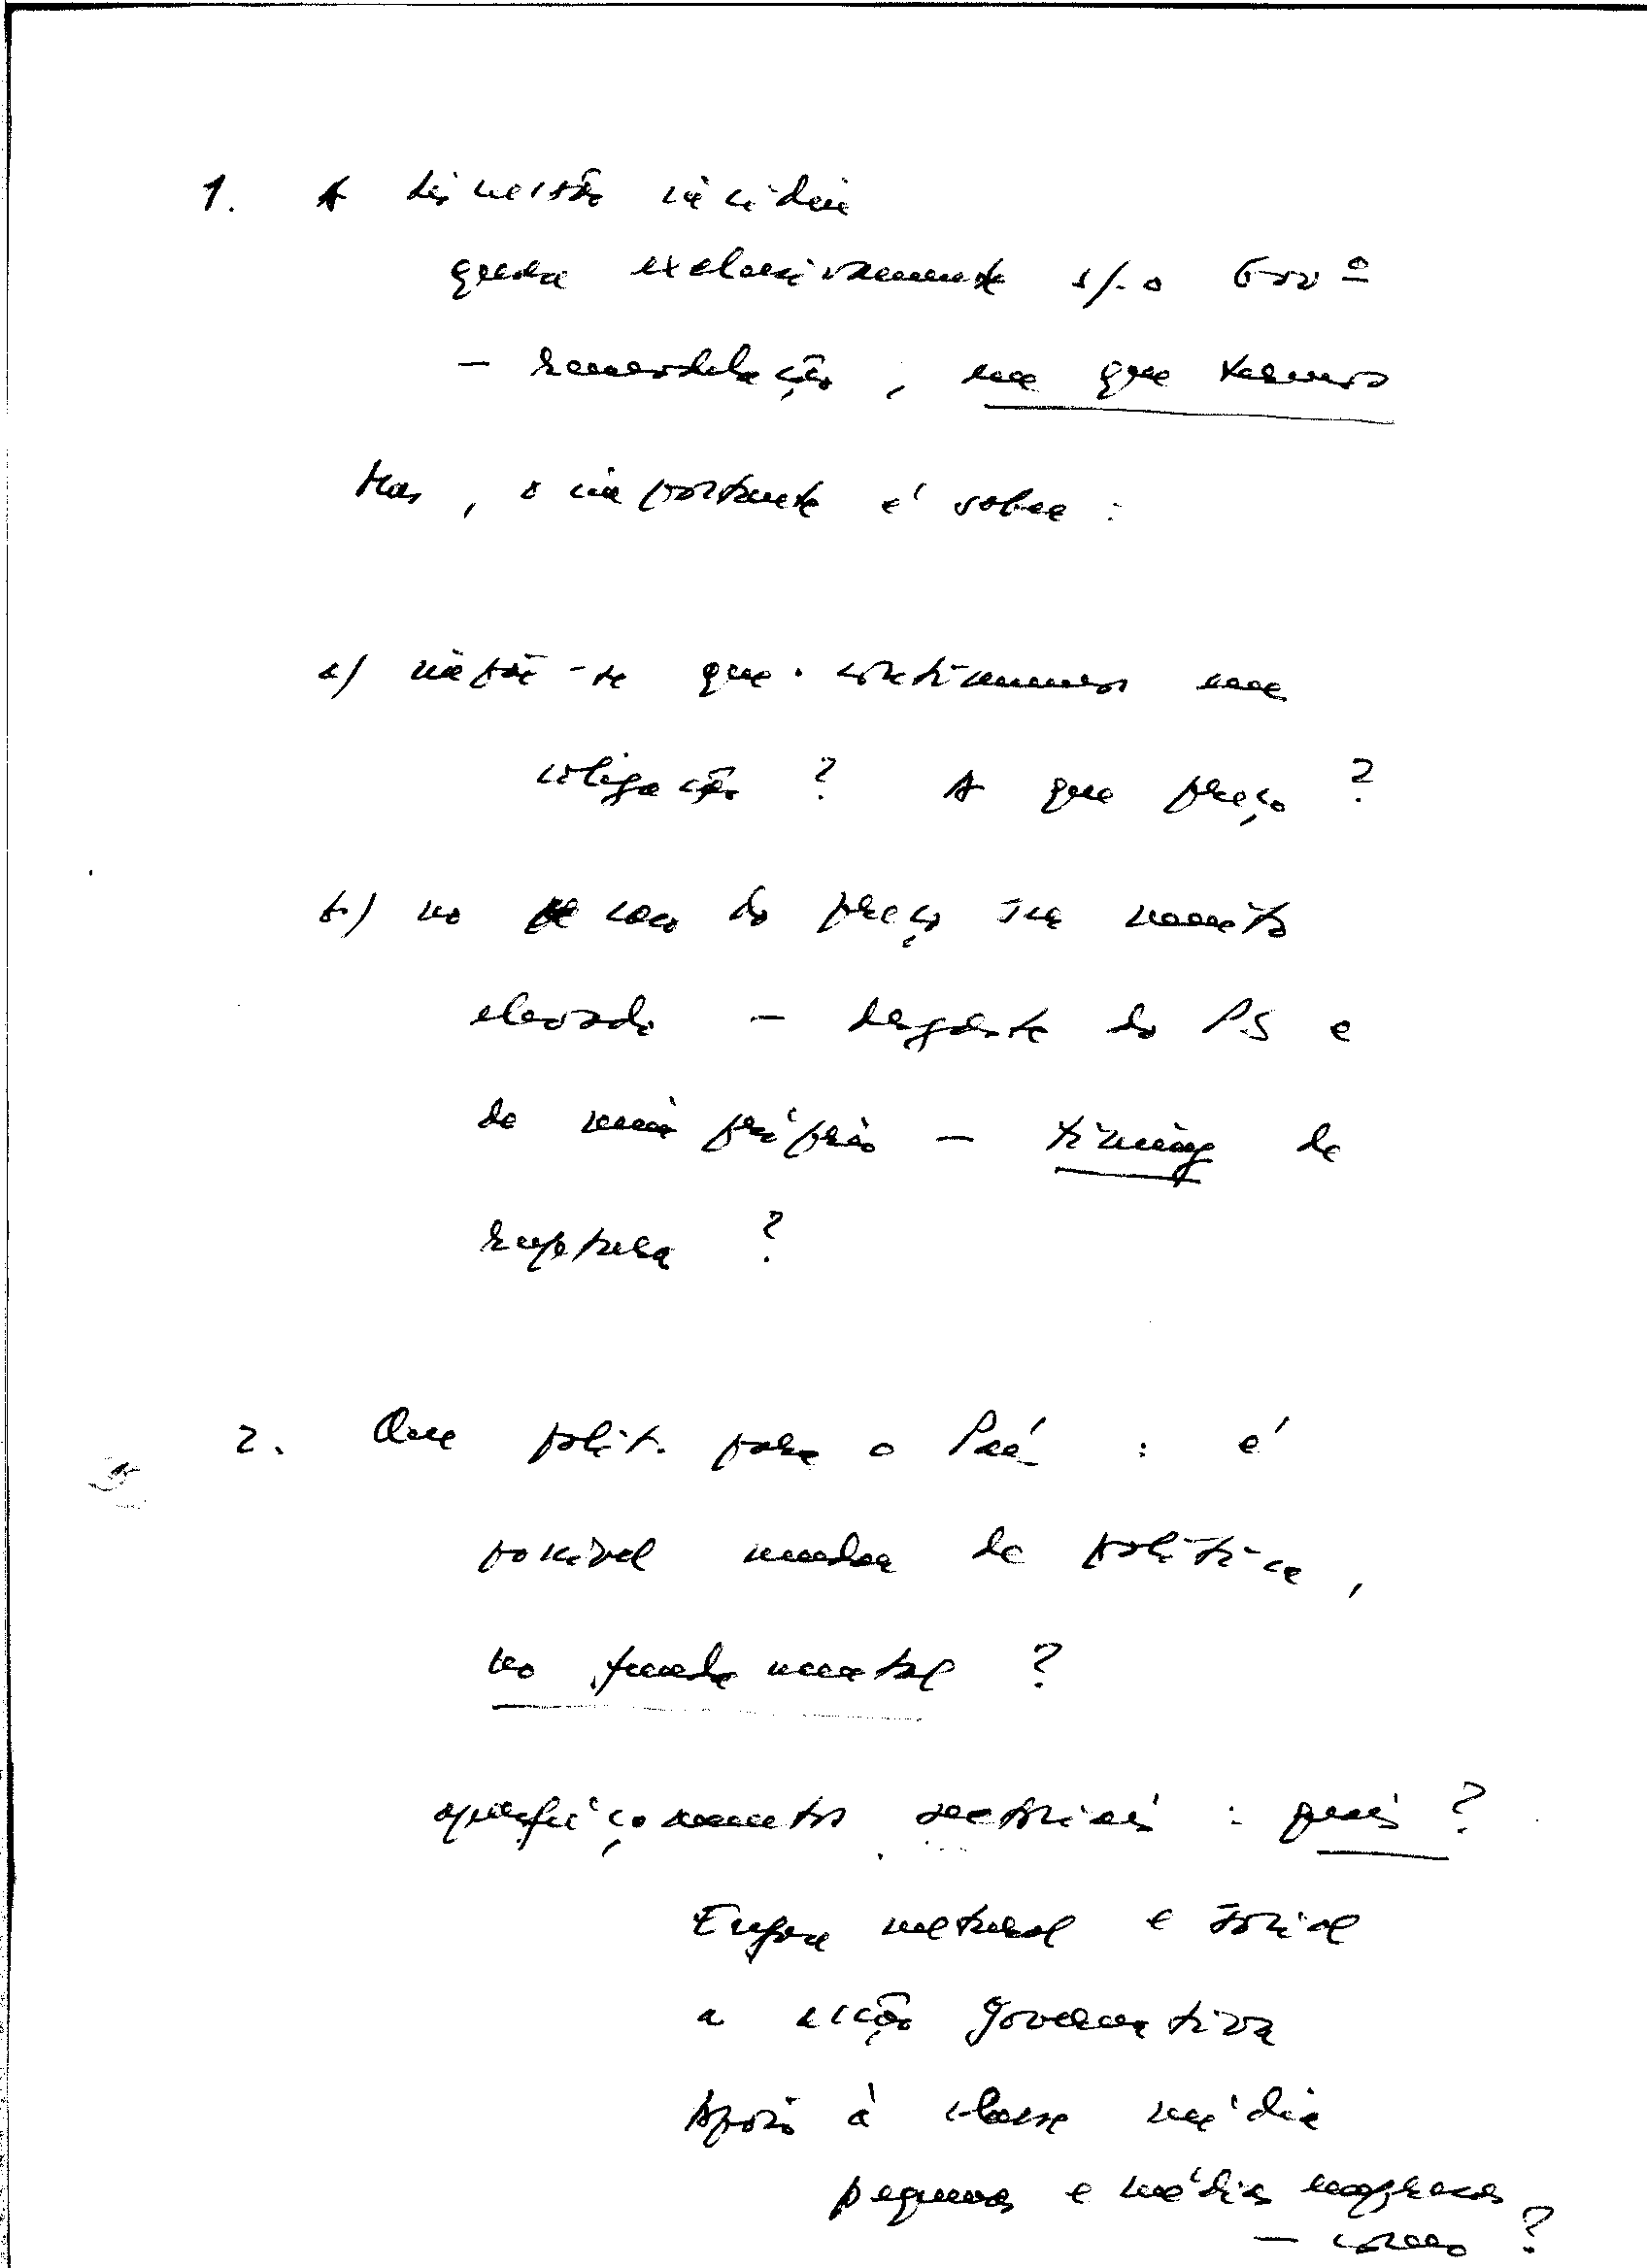 1. A discussão incidiu
quase exclusivamente s/. o Govº
- remodelação, em que termos
Mas, o importante é sobre:
a) impõe-se que continuemos em
coligação? A que preço?
b) no caso do preço ser muito
elevado - desgaste do PS e
de mim próprio - timing de
ruptura?
2. Que polít. para o País: é
possível mudar de política,
no fundamental?
aperfeiçoamentos sectoriais: quais?
cultural e social
a acção governativa
Apoio à classe média
pequenas e médias empresas
- como?